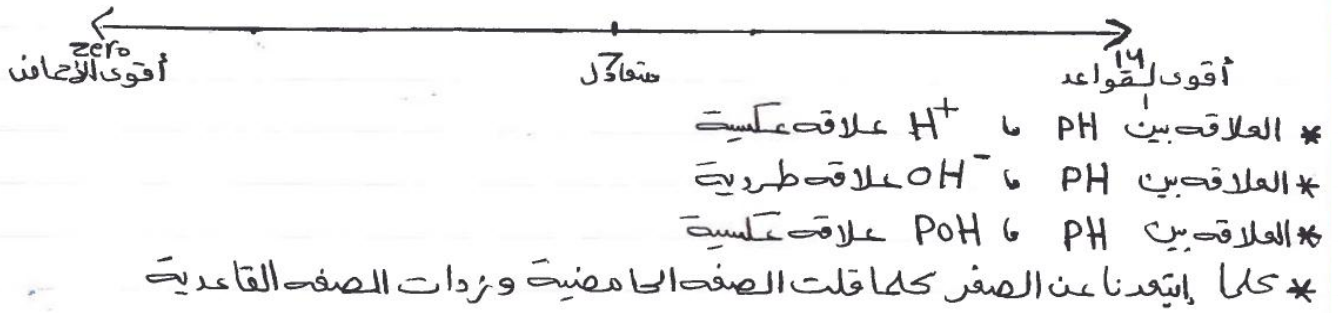 zero 7 14
أقوى الأحماض متعادل أقوى القواعد
* العلاقه بين PH و H+ علاقه عكسية
* العلاقه بين PH و OH- علاقه طردية
* العلاقه بين PH و POH علاقه عكسية
* كلما إبتعدنا عن الصفر كلما قلت الصفه الحامضية وزدات الصفه القاعدية